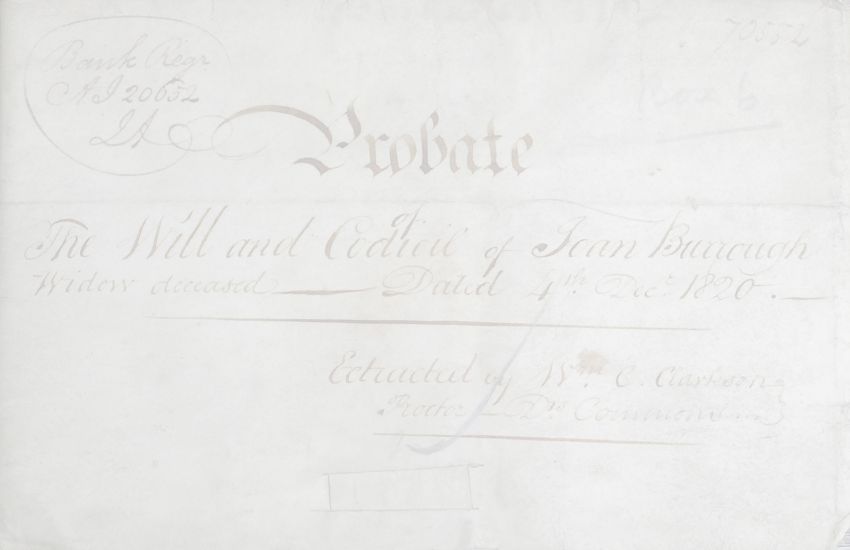 70552
Bank Regr
AJ 20652
Box 6
Probate
of
The Will and Codicil of Joan Burrough
Widow deceased — Dated 4th Decr 1820. —
Extracted by Wm. C. Clarkson
Proctor — Drs Commons